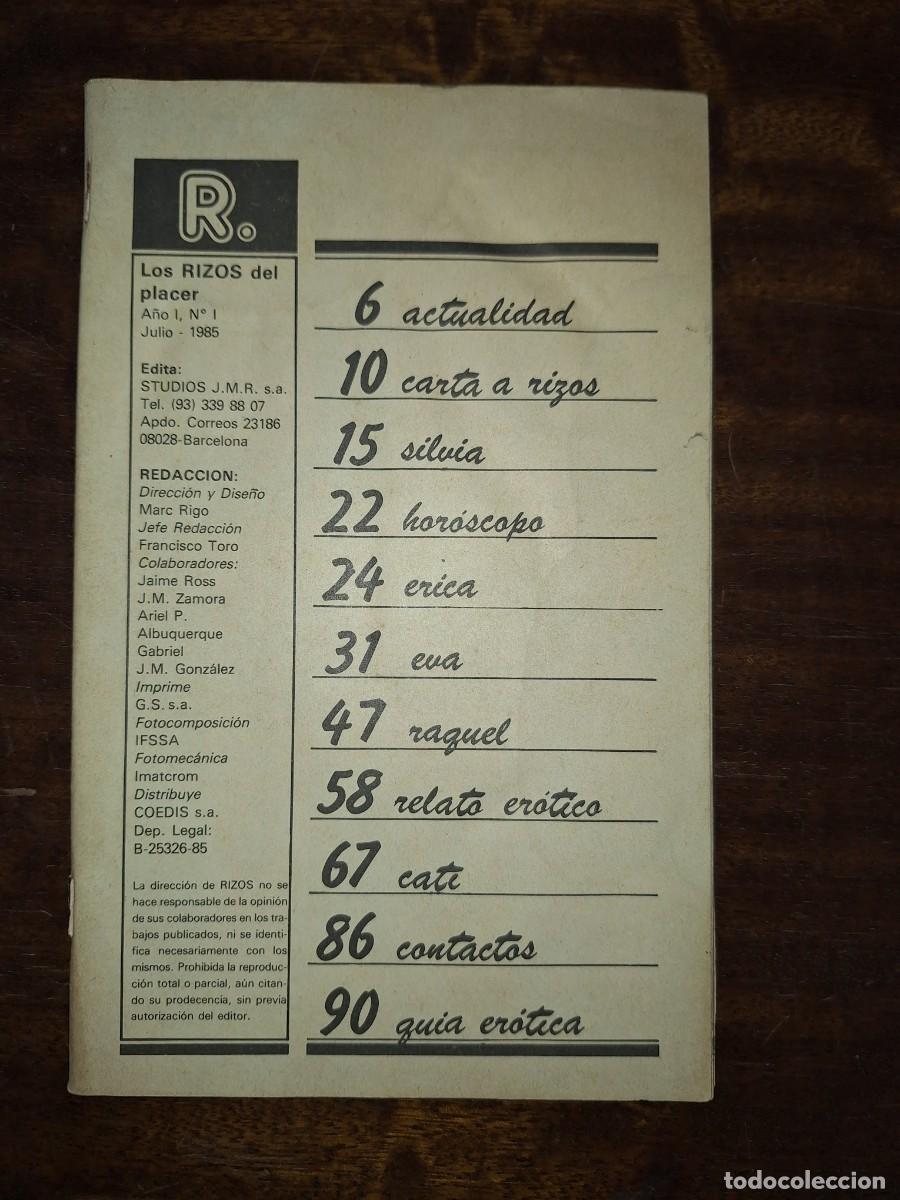 R.
Los RIZOS del
placer
Año I, Nº I
Julio - 1985
Edita:
STUDIOS J.M.R. s.a.
Tel. (93) 339 88 07
Apdo. Correos 23186
08028-Barcelona
REDACCION:
Dirección y Diseño
Marc Rigo
Jefe Redacción
Francisco Toro
Colaboradores:
Jaime Ross
J.M. Zamora
Ariel P.
Albuquerque
Gabriel
J.M. González
Imprime
G.S. s.a.
Fotocomposición
IFSSA
Fotomecánica
Imatcrom
Distribuye
COEDIS s.a.
Dep. Legal:
B-25326-85
La dirección de RIZOS no se
hace responsable de la opinión
de sus colaboradores en los tra-
bajos publicados, ni se identi-
fica necesariamente con los
mismos. Prohibida la reproduc-
ción total o parcial, aún citan-
do su prodecencia, sin previa
autorización del editor.
6 actualidad
10 carta a rizos
15 silvia
22 horóscopo
24 erica
31 eva
47 raquel
58 relato erótico
67 cati
86 contactos
90 guia erótica
todocoleccion